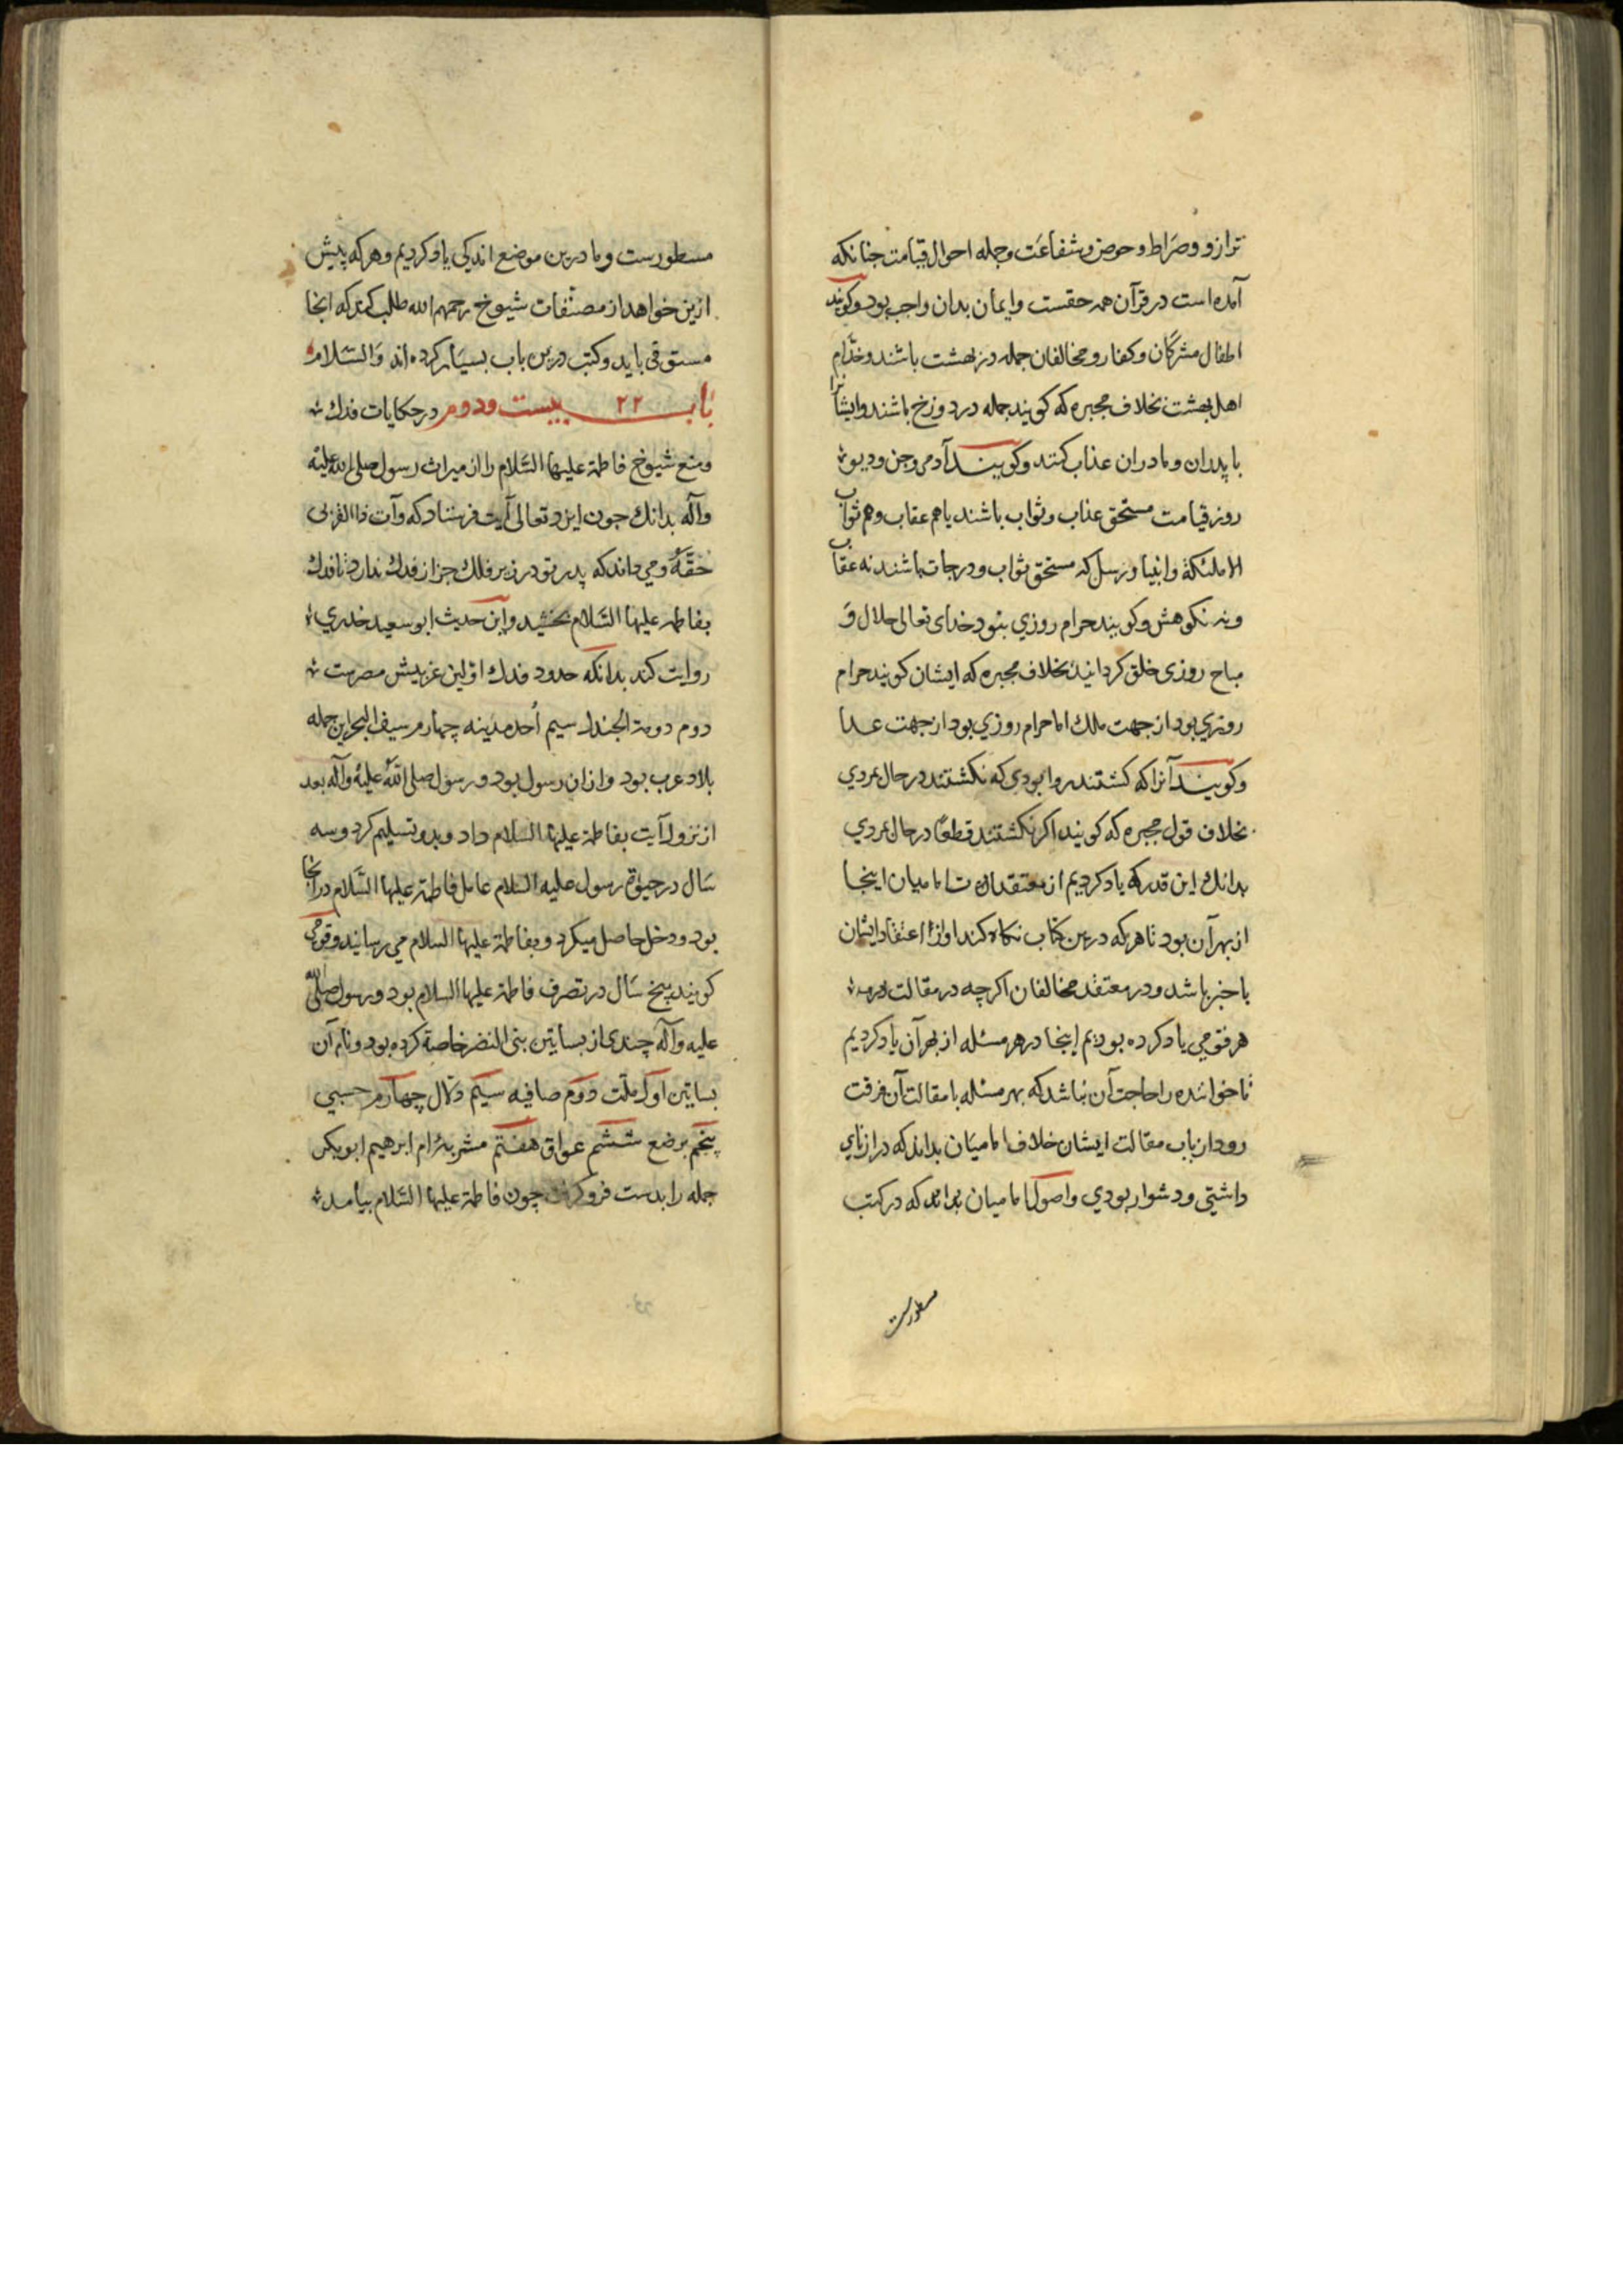 ترازو و صراط و حوض و شفاعت و جمله احوال قیامت جنانکه
آمده است در قرآن همه حقست و ایمان بدان واجب بود و کویند
اطفال مشرکان و کفار و مخالفان جمله در بهشت باشند و خدّام
اهل بهشت بخلاف مجبره که کویند جمله در دوزخ باشند و ایشانرا
با پدران و مادران عذاب کنند و کویند آدمی و جن و دیو
روز قیامت مستحق عذاب و ثواب باشند یا هم عقاب و هم ثواب
الا ملئکة و انبیا و رسل که مستحق ثواب و درجات باشند نه عقاب
و نه نکوهش و کویند حرام روزی نبود خدای تعالی حلال وَ
مباح روزی خلق کردانید بخلاف مجبره که ایشان کویند حرام
روزی بود از جهت ملك اما حرام روزی بود از جهت غذا
و کویند آنرا که کشتند روا بودی که نکشتند در حال بمردی
بخلاف قول مجبره که کویند اکر نکشتند قطعًا در حال بمردی
بدانك این قدر که یاد کردیم از معتقدات امامیان اینجا
از بهر آن بود تا هر که درین کتاب نکاه کند او از اعتقاد ایشان
با خبر باشد و در معتقد مخالفان اکرچه در مقالت
هر قومی یاد کرده بودیم اینجا در هر مسئله از بهر آن یاد کردیم
تا خواننده را حاجت آن نباشد که بهر مسئله با مقالت آن فرقت
رود از باب مقالت ایشان خلاف امامیان بداند که درازنای
داشتی و دشوار بودی و اصول امامیان بداند که در کتب
مسطورست
مسطورست و ما درین موضع اندکی یاد کردیم و هر که بیش
ازین خواهد از مصنّفات شیوخ رحمهم الله طلب کند که انجا
مستوفی یابد و کتب درین باب بسیار کرده اند وَالسّلام
باب ۲۲ بیست و دوم در حکایات فدك
و منع شیوخ فاطمة علیها السّلام را از میراث رسول صلی الله علیه
وآله بدانك جون ایزد تعالی آیت فرستاد که وآت ذا القربی
حَقَّهُ و می داند که پدر تو در زیر فلك جز از فدك ندارد تا فدك
بفاطمه علیها السّلام بخشید و این حدیث ابو سعید خدری
روایت کند بدانکه حدود فدك اوّلین عریش مصرست
دوم دومة الجندل سیم اُحد مدینه چهارم سیف البحر این جمله
بلاد عرب بود و از آن رسول بود و رسول صلی الله علیه وآله بعد
از نزول آیت بفاطمة علیها السّلام داد و بدو تسلیم کرد و سه
سال در حیوة رسول علیه السلام عامل فاطمة علیها السّلام در آنجا
بود و دخل حاصل میکرد و بفاطمة علیها السلام می رسانید و قومی
کویند پنج سال در تصرف فاطمة علیها السلام بود و رسول صلی الله
علیه وآله چندی از بساتین بنی النضر خاصة کرده بود و نام آن
بساتین اول ملّت دوم صافیه سیم دلال چهارم حسبی
پنجم برضع ششم عواق هفتم مشربه اُم ابرهیم ابوبکر
جمله را بدست فرو کرفت چون فاطمة علیها السّلام بیامد